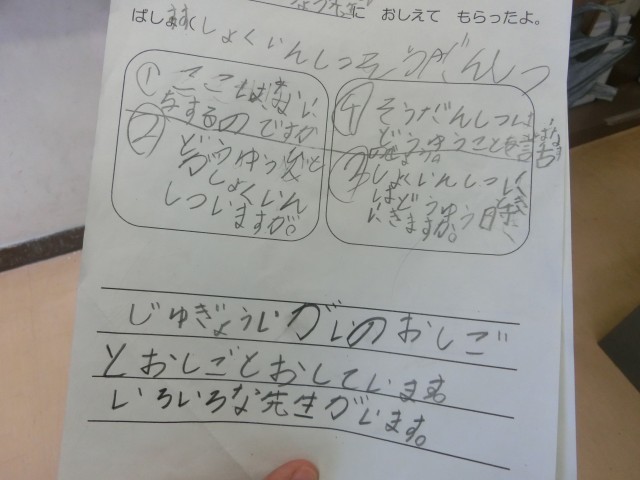 に おしえて もらったよ。
ばしょ
しょくいんしつそうだんしつ
① ここはなに
をするのですか
② どうゆう人と
が
しょくいん
しついますか。
④ そうだんしつは
どうゆうことを話
③ しょくいんしつ
はどうゆう時に
いきますか。
じゅぎょういがいのおしご
とおしごとおしています
いろいろな先生がいます。